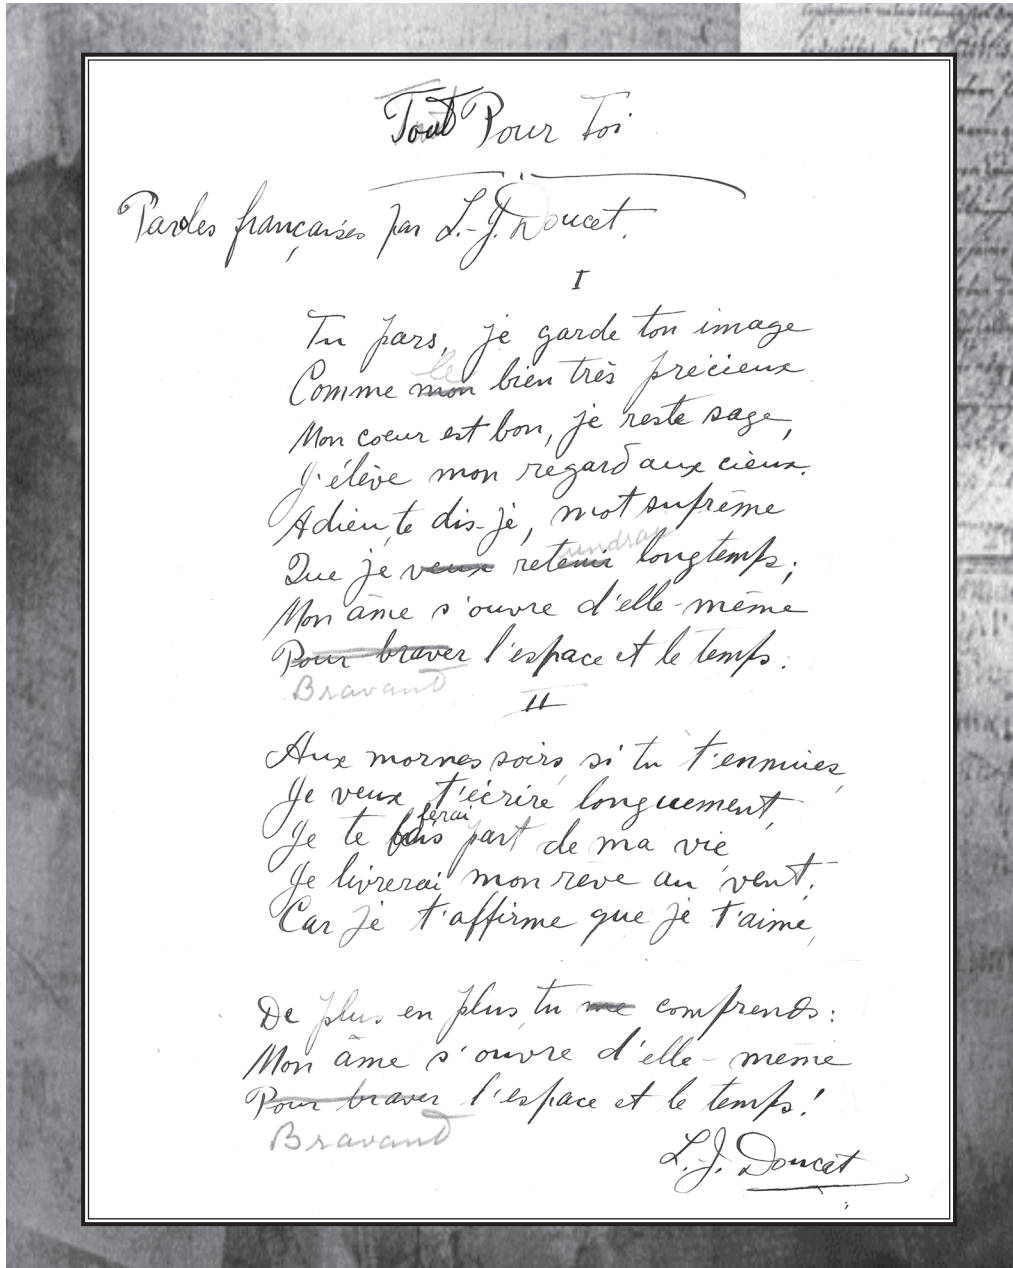 Tout Pour Toi
Paroles françaises par L.-J. Doucet.
I
Tu pars, je garde ton image
le
Comme mon bien très précieux
Mon coeur est bon, je reste sage,
J'élève mon regard aux cieux.
Adieu, te dis-je, mot suprême
undrai
Que je veux retenir longtemps;
Mon âme s'ouvre d'elle-même
Pour braver l'espace et le temps.
Bravant
II
Aux mornes soirs, si tu t'ennuies,
Je veux t'écrire longuement,
ferai
Je te fais part de ma vie
Je livrerai mon rêve au vent.
Car je t'affirme que je t'aime,
De plus en plus, tu me comprends:
Mon âme s'ouvre d'elle-même
Pour braver l'espace et le temps!
Bravant
L.-J. Doucet